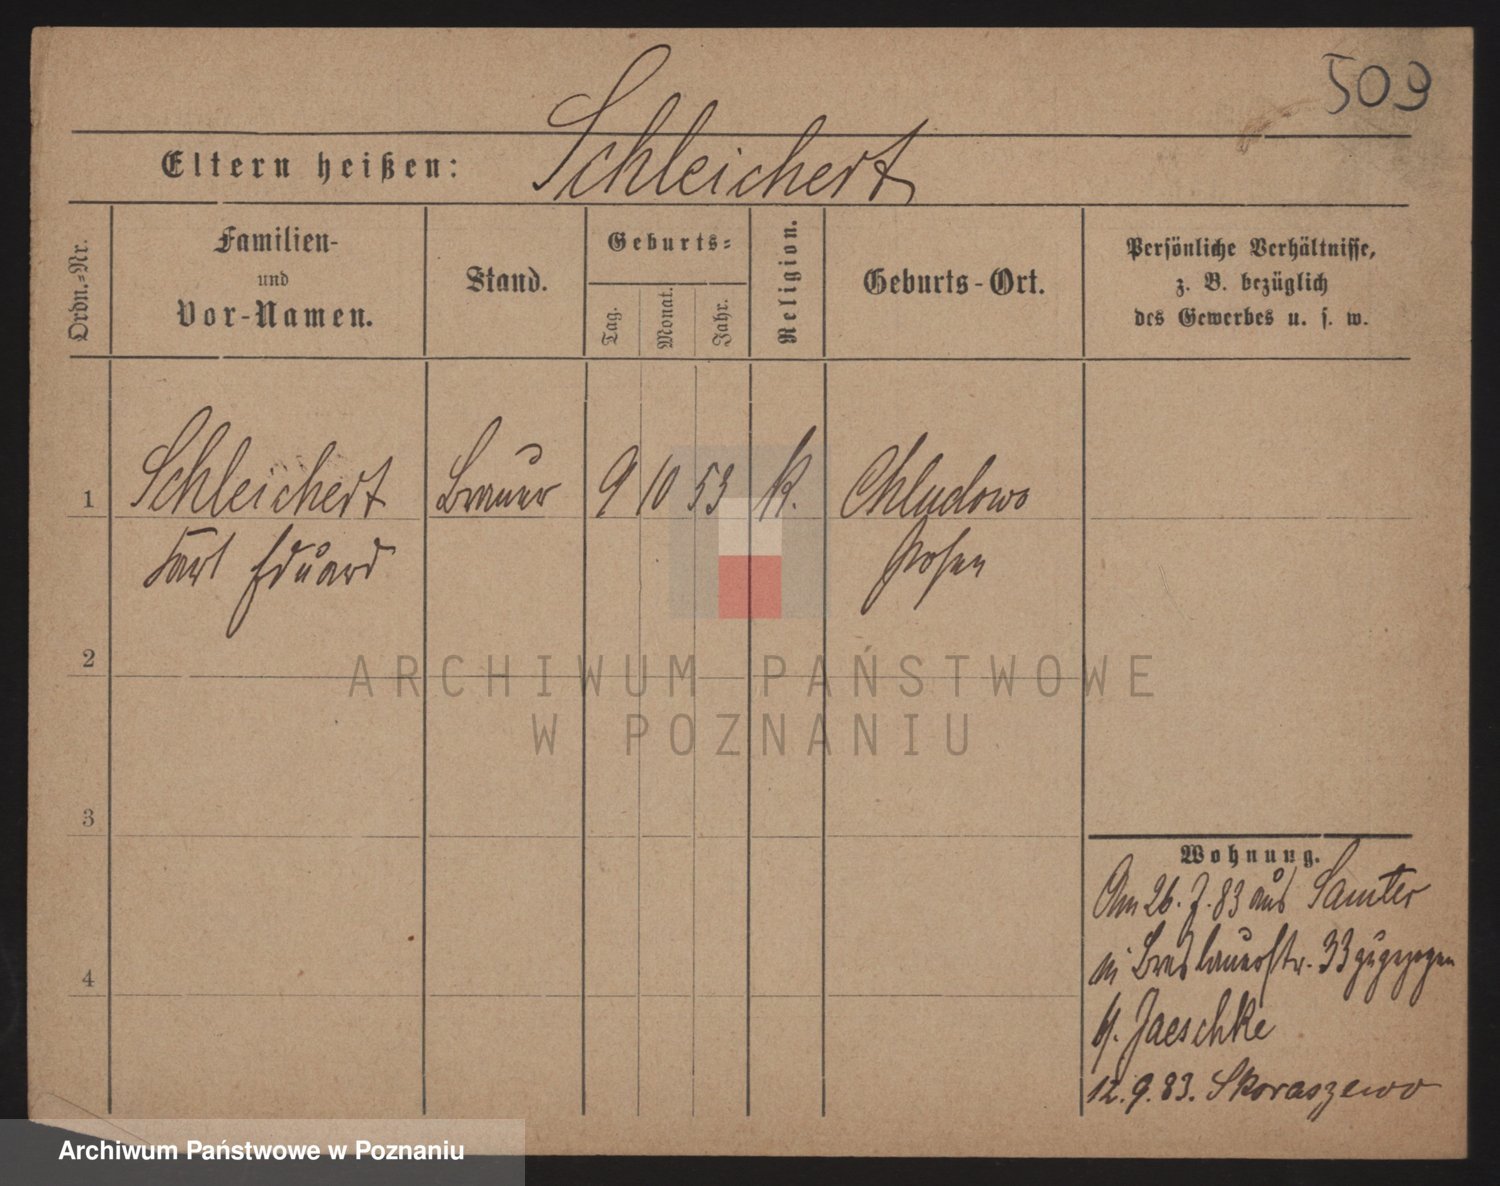 509
Eltern heißen: Schleichert
Ordn.-Nr.
Familien-
und
Vor-Namen.
Stand.
Geburts-
Tag.
Monat.
Jahr.
Religion.
Geburts-Ort.
Persönliche Verhältnisse,
z. B. bezüglich
des Gewerbes u. s. w.
1 Schleichert Brauer 9 10 53 k. Chludowo
Karl Eduard Posen
2
ARCHIWUM PAŃSTWOWE
W POZNANIU
3
Wohnung.
Am 26. 7. 83 aus Samter
in Breslauerstr. 33 zugezogen
4
b. Jaeschke
12. 9. 83. Skoraszewo
Archiwum Państwowe w Poznaniu